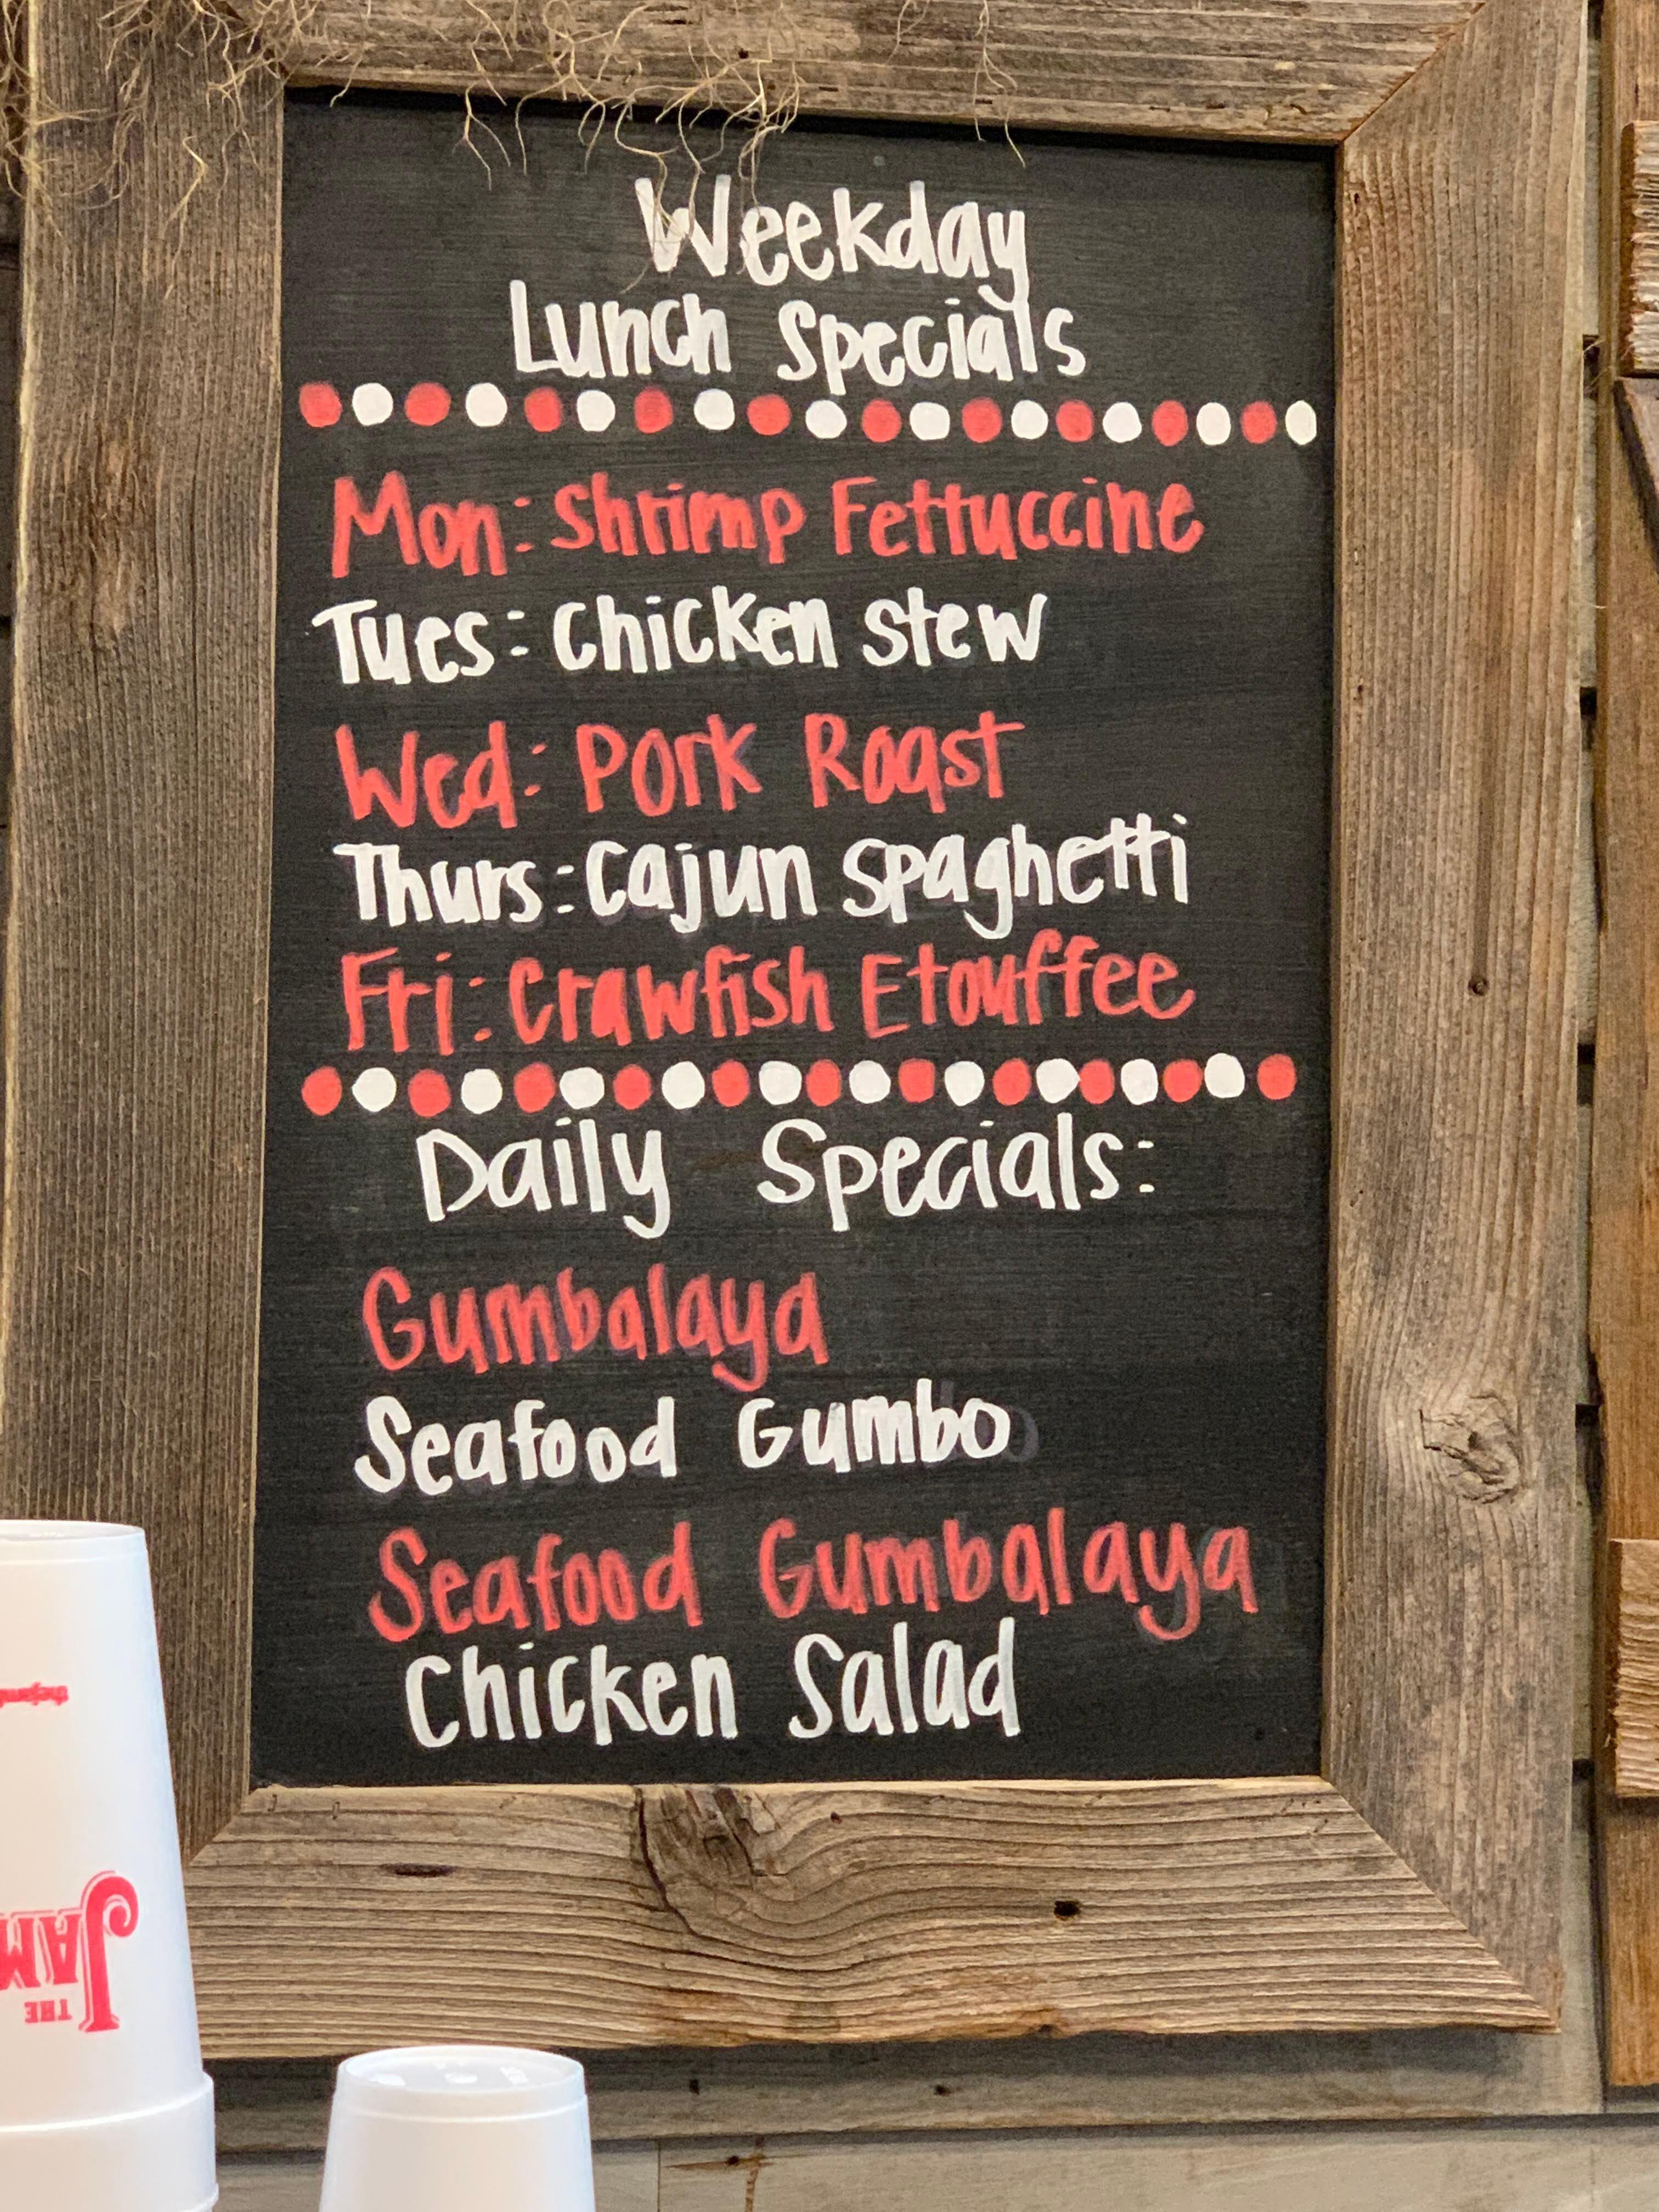 Weekday
Lunch Specials
Mon: Shrimp Fettuccine
Tues: Chicken Stew
Wed: Pork Roast
Thurs: Cajun Spaghetti
Fri: Crawfish Etouffee
Daily Specials:
Gumbalaya
Seafood Gumbo
Seafood Gumbalaya
Chicken Salad
THE
JAM